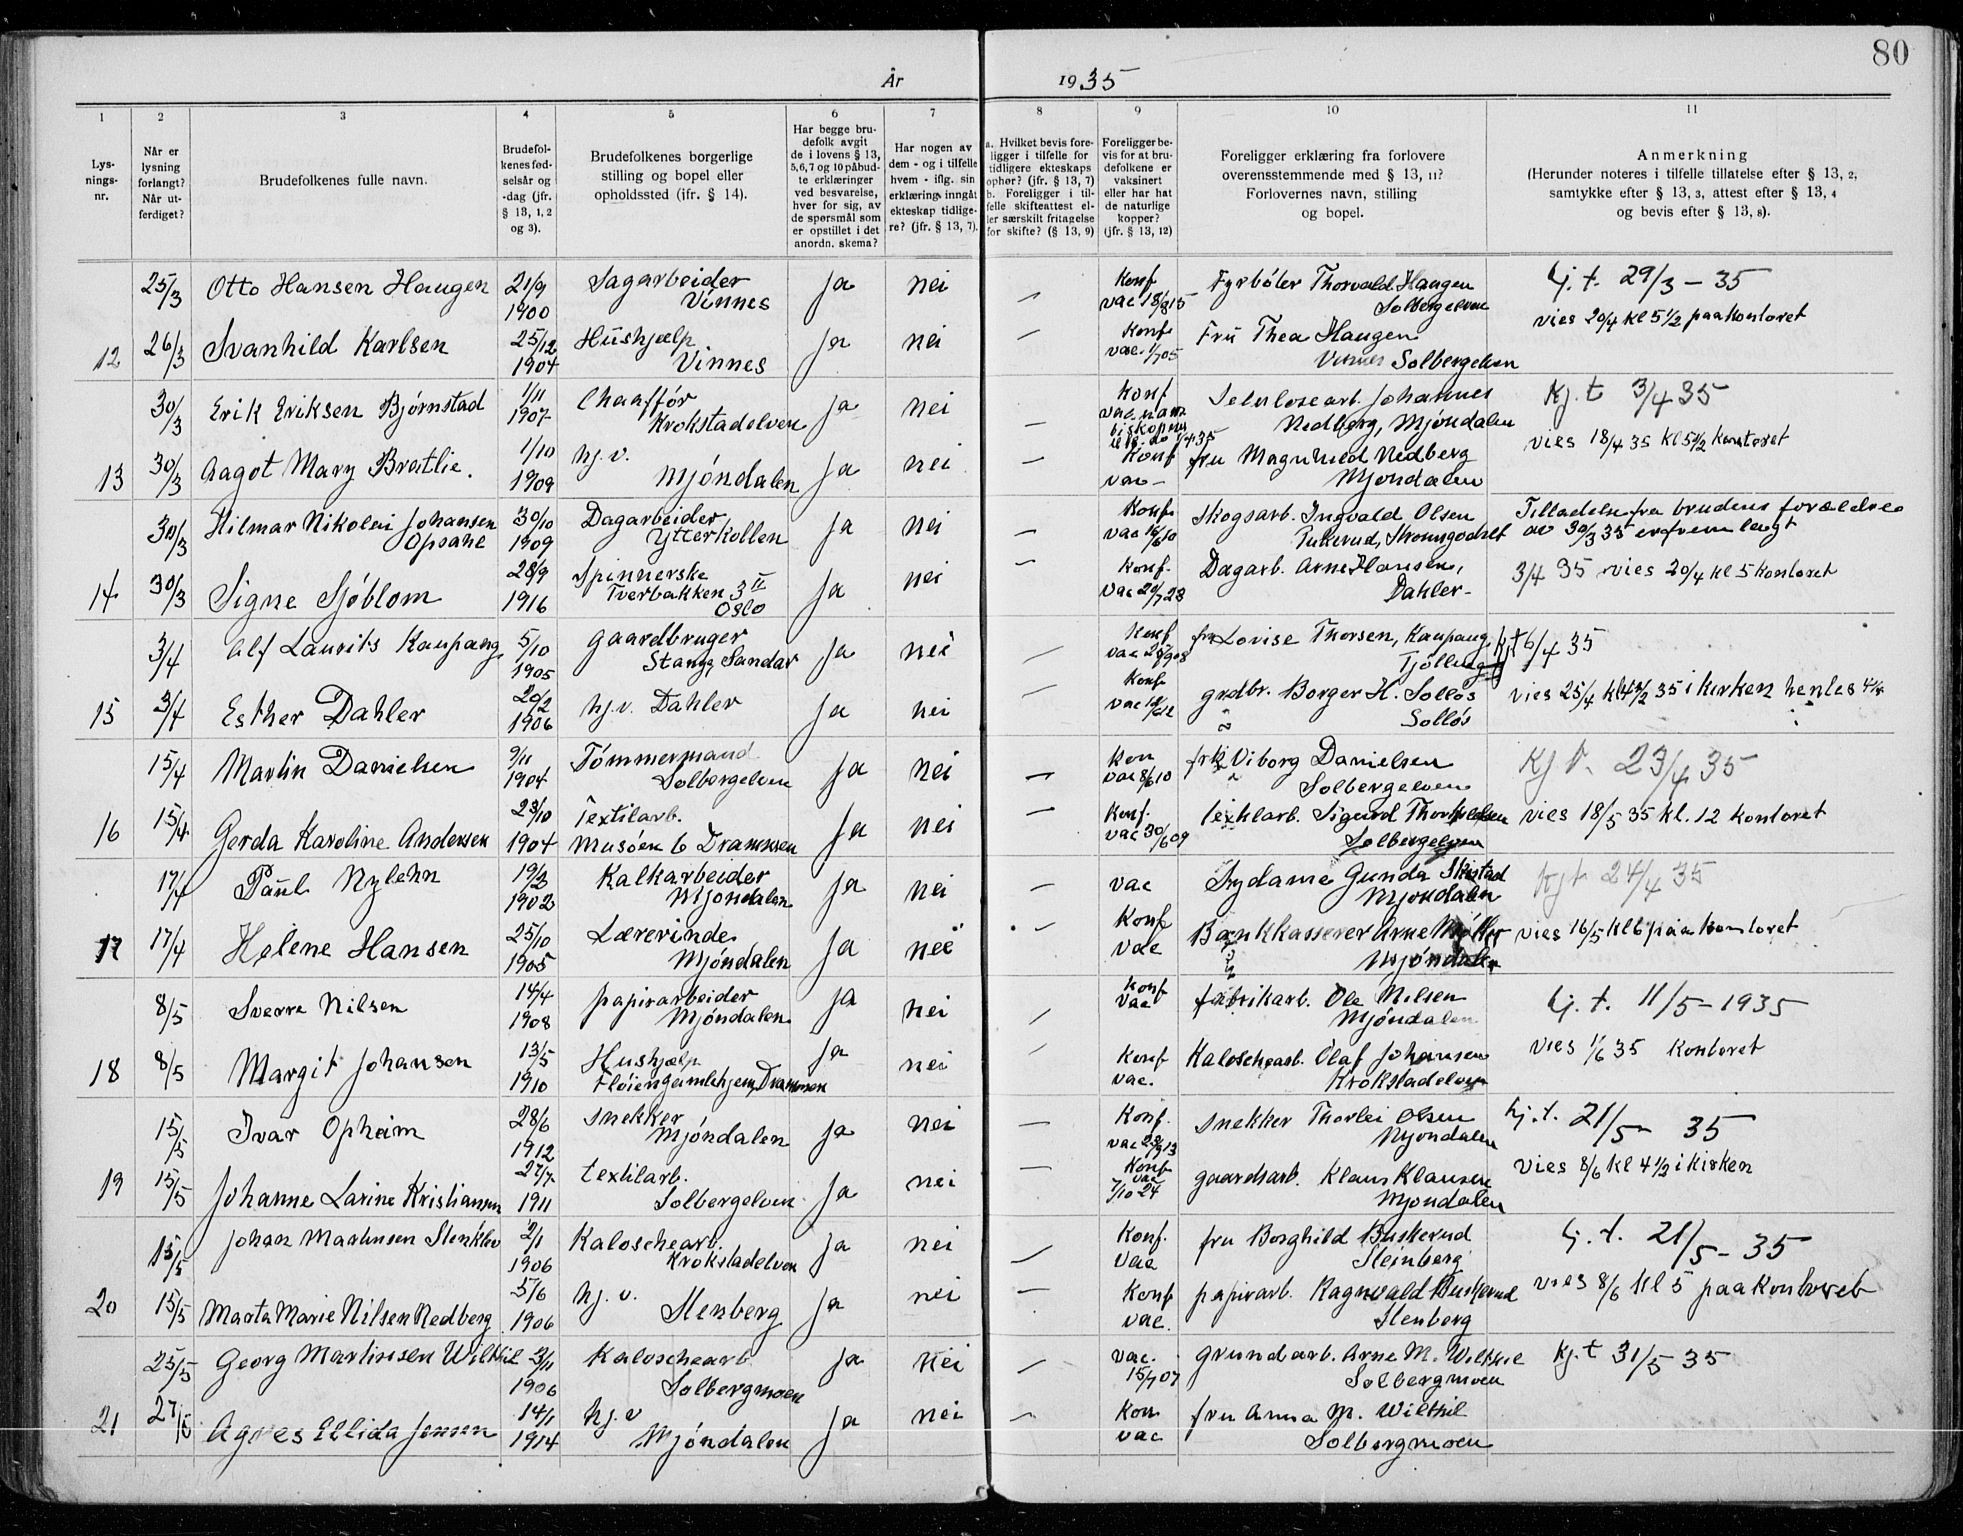 80
År 1935
1 2 3 4 5 6 7 8 9 10 11
Lys-
nings-
nr.
Når er
lysning
forlangt?
Når ut-
ferdiget?
Brudefolkenes fulle navn.
Brudefol-
kenes fød-
selsår og
-dag (jfr.
§ 13, 1, 2
og 3).
Brudefolkenes borgerlige
stilling og bopel eller
opholdssted (ifr. § 14).
Har begge bru-
defolk avgit
de i lovens § 13,
5,6,7 og 10 påbud-
te erklæringer
ved besvarelse,
hver for sig, av
de spørsmål som
er opstillet i det
anordn. skema?
Har nogen av
dem - og i tilfelle
hvem - iflg. sin
erklæring, inngåt
ekteskap tidlige-
re? (jfr. § 13, 7).
a. Hvilket bevis fore-
ligger i tilfelle for
tidligere ekteskaps
ophør? (jfr. § 13, 7)
b. Foreligger i til-
felle skifteattest el-
ler særskilt fritagelse
for skifte? (§ 13, 9)
Foreligger be-
vis for at bru-
defolkene er
vaksinert
eller har hat
de naturlige
kopper?
(jfr. § 13, 12)
Foreligger erklæring fra forlovere
overensstemmende med § 13, 11?
Forlovernes navn, stilling
og bopel.
Anmerkning
(Herunder noteres i tilfelle tillatelse efter § 13, 2,
samtykke efter § 13, 3, attest efter § 13, 4
og bevis efter § 13, 8).
25/3 Otto Hansen Haugen 21/9 1900 Sagarbeider Vinnes ja nei — Konf vac 18/8 15 Fyrbøter Thorvald Haugen Solbergelven kj. t. 29/3 - 35
12 26/3 Svanhild Karlsen 25/12 1904 Hushjælp Vinnes ja nei — Konf vac. 1/7 05 Fru Thea Haugen Vinnes Solbergelven vies 20/4 kl 5 1/2 paa kontoret
30/3 Erik Eriksen Bjørnstad 1/11 1907 Chaaffør Krokstadelven ja nei — Konf Selulosearb. Johannes Nedberg, Mjøndalen Kj. t 3/4 35
13 30/3 Aagot Mary Bratlie. 1/10 1909 hj. v. Mjøndalen ja nei — Konf vac — fru Magnhild Nedberg Mjøndalen vies 18/4 35 kl 5 1/2 kontoret
30/3 Hilmar Nikolai Johansen Opsahl 30/10 1909 Dagarbeider Ytterkollen ja nei — Konf. vac 16/6 10 Skogsarb. Ingvald Olsen Tilladelse fra brudens forældre av 30/3 35 er fremlagt
14 30/3 Signe Sjøblom 28/9 1916 Spinnerske Tverbakken 3 II Oslo ja nei — Konf. vac 20/7 23 Dagarb. Arne Hansen, Dahler - 3/4 35 vies 20/4 kl 5 kontoret
3/4 Alf Laurits Kaupang 5/10 1905 gaardbruger Stang, Sandar ja nei — Konf fru Lovise Thorsen, Kaupang, Tjølling kjt 6/4 35
15 3/4 Esther Dahler 20/2 1906 hj. v. Dahler ja nei — Konf grdbr. Borger H. Solløs Solløs vies 25/4 kl 4 1/2 35 i kirken hentes
15/4 Martin Danielsen 9/11 1904 Tømmermand Solbergelven ja nei — Kon vac 8/6 10 frk Viborg Danielsen Solbergelven Kj t. 23/4 35
16 15/4 Gerda Karoline Andersen 23/10 1904 Textilarb. Musøen 6 Drammen ja nei — Konf. vac 30/6 09 Textilarb. Sigurd Thorkelsen Solbergelven vies 18/5 35 kl. 12 kontoret
17/4 Paul Nylehn 19/2 1902 Kalkarbeider Mjøndalen ja nei — vac Sydame Gunda Skistad Mjøndalen Kjt 24/4 35
17 17/4 Helene Hansen 25/10 1905 Lærerinde Mjøndalen ja nei — Konf vac Bankkasserer Arne Møller Mjøndalen vies 16/5 kl 6 paa kontoret
8/5 Sverre Nilsen 14/4 1908 papirarbeider Mjøndalen ja nei — Konf vac fabrikarb. Ole Nilsen Mjøndalen kj. t. 11/5 - 1935
18 8/5 Margit Johansen 13/5 1910 Hushjælp Fløien gamlehjem, Drammen ja nei — Konf vac. Kaloschearb. Olaf Johansen Krokstadelven vies 1/6 35 kontoret
15/5 Ivar Opheim 28/6 1912 Snekker Mjøndalen ja nei — Konf. vac 22/9 13 Snekker Thorlei Olsen Mjøndalen kj. t. 21/5 - 35
19 15/5 Johanne Larine Kristiansen 27/7 1911 textilarb. Solbergelven ja nei — Konf vac 7/10 24 gaardsarb. Klaus Klausen Mjøndalen vies 8/6 kl 4 1/2 i kirken
15/5 Johan Martinsen Stenklev 2/1 1906 Kaloschearb. Krokstadelven ja nei — Konf. vac fru Borghild Buskerud Steinberg kj. t. 21/5 - 35
20 15/5 Marta Marie Nilsen Nedberg 5/6 1906 hj. v. Stenberg ja nei — Konf vac. papirarb. Ragnvald Buskerud Stenberg vies 8/6 kl 5 paa kontoret
25/5 Georg Martinsen Wilthil 2/11 1906 Kaloschearb. Solbergmoen ja nei — vac. 15/7 07 grundarb. Arne M. Wilthil Solbergmoen kj. t 31/5 35
21 27/5 Agnes Ellida Jensen 14/1 1914 hj. v Mjøndalen ja nei — Kon vac fru Anna M. Wilthil Solbergmoen